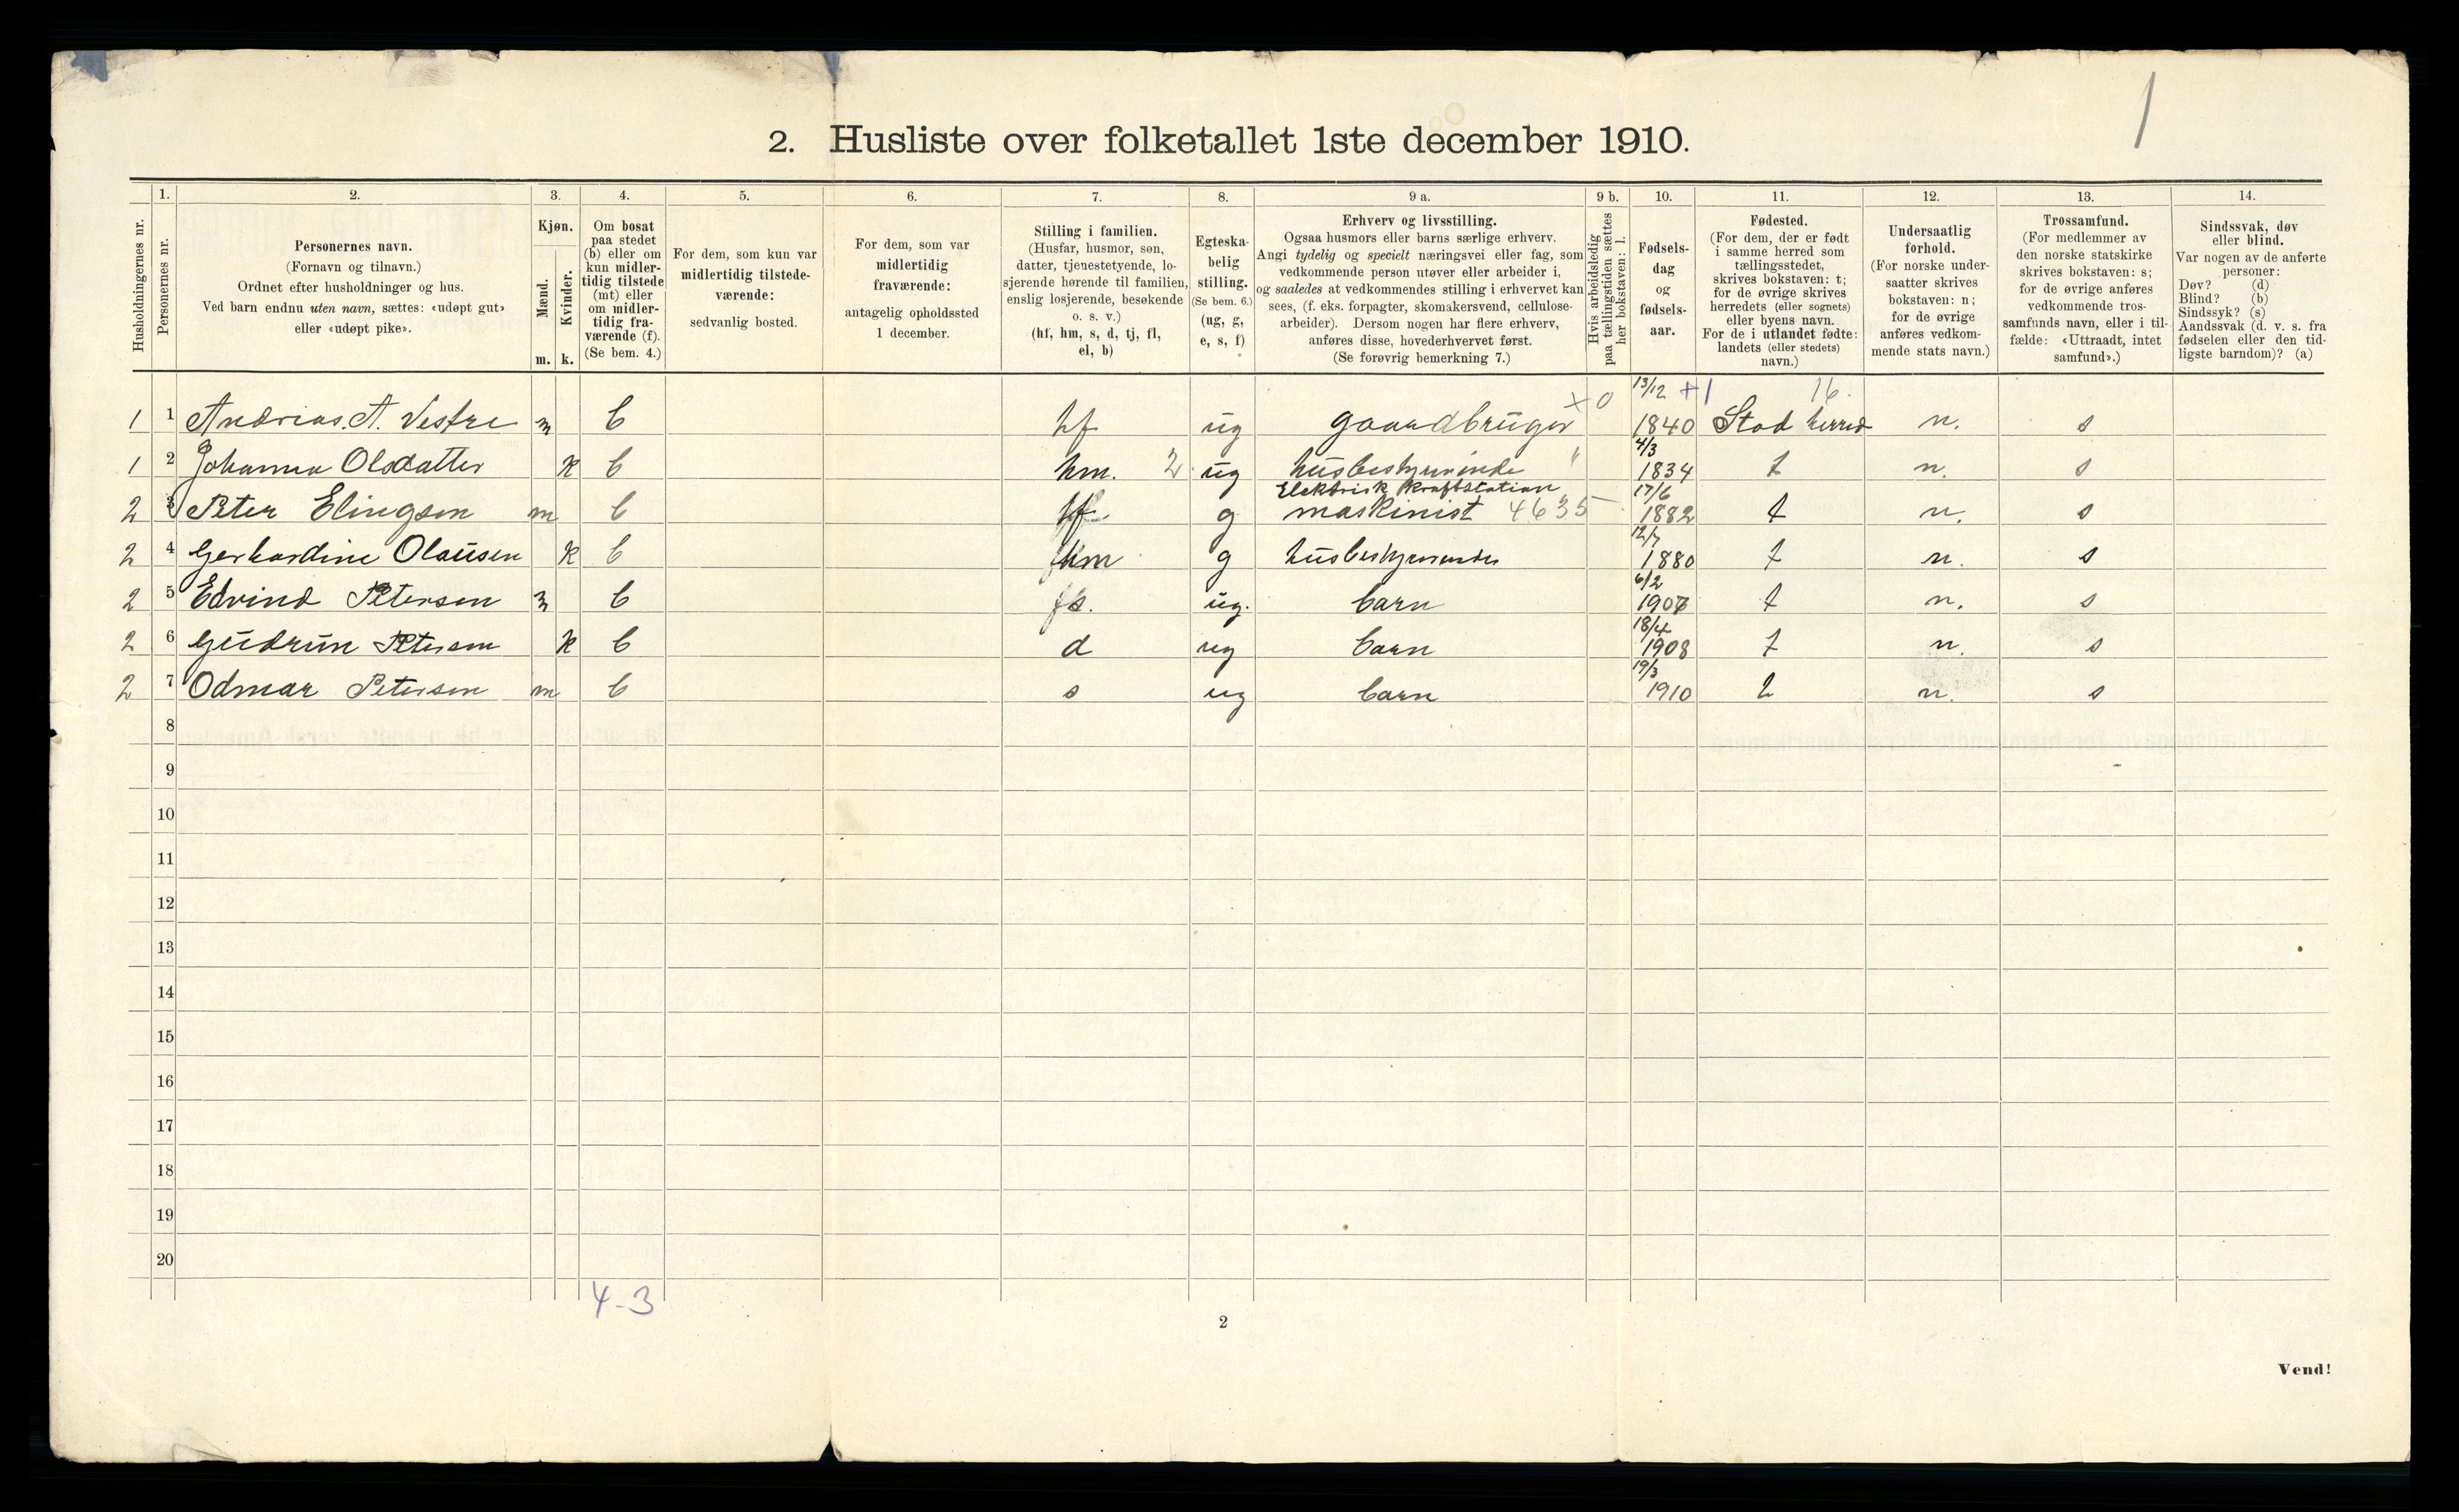 1
2. Husliste over folketallet 1ste december 1910.
1. 2. 3. 4. 5. 6. 7. 8. 9 a. 9 b. 10. 11. 12. 13. 14.
Husholdningernes nr.
Personernes nr.
Personernes navn.
(Fornavn og tilnavn.)
Ordnet efter husholdninger og hus.
Ved barn endnu uten navn, sættes: «udøpt gut»
eller «udøpt pike».
Kjøn.
Mænd.
Kvinder.
m. k.
Om bosat
paa stedet
(b) eller om
kun midler-
tidig tilstede
(mt) eller
om midler-
tidig fra-
værende (f).
(Se bem. 4.)
For dem, som kun var
midlertidig tilstede-
værende:
sedvanlig bosted.
For dem, som var
midlertidig
fraværende:
antagelig opholdssted
1 december.
Stilling i familien.
(Husfar, husmor, søn,
datter, tjenestetyende, lo-
sjerende hørende til familien,
enslig losjerende, besøkende
o. s. v.)
(hf, hm, s, d, tj, fl,
el, b)
Egteska-
belig
stilling.
(Se bem. 6.)
(ug, g,
e, s, f)
Erhverv og livsstilling.
Ogsaa husmors eller barns særlige erhverv.
Angi tydelig og specielt næringsvei eller fag, som
vedkommende person utøver eller arbeider i,
og saaledes at vedkommendes stilling i erhvervet kan
sees, (f. eks. forpagter, skomakersvend, cellulose-
arbeider). Dersom nogen har flere erhverv,
anføres disse, hovederhvervet først.
(Se forøvrig bemerkning 7.)
Hvis arbeidsledig
paa tællingstiden sættes
her bokstaven: l.
Fødsels-
dag
og
fødsels-
aar.
Fødested.
(For dem, der er født
i samme herred som
tællingsstedet,
skrives bokstaven: t;
for de øvrige skrives
herredets (eller sognets)
eller byens navn.
For de i utlandet fødte:
landets (eller stedets)
navn.)
Undersaatlig
forhold.
(For norske under-
saatter skrives
bokstaven: n;
for de øvrige
anføres vedkom-
mende stats navn.)
Trossamfund.
(For medlemmer av
den norske statskirke
skrives bokstaven: s;
for de øvrige anføres
vedkommende tros-
samfunds navn, eller i til-
fælde: «Uttraadt, intet
samfund».)
Sindssvak, døv
eller blind.
Var nogen av de anførte
personer:
Døv? (d)
Blind? (b)
Sindssyk? (s)
Aandssvak (d. v. s. fra
fødselen eller den tid-
ligste barndom)? (a)
x 0 13/12 +1 16.
1 1 Andrias. A. Vestre m b hf ug gaardbruger 1840 Stod herred n. s
4/3
1 2 Johanna Olsdatter k b hm. 2 ug husbestyrerinde " 1834 t n. s
Elektrisk kraftstation 17/6
2 3 Peter Elingsen m b hf g maskinist 4635 1882 t n. s
12/7
2 4 Gerhardine Olausen k b hm g husbestyrerinde 1880 t n. s
6/2
2 5 Edvind Petersen m b s. ug. barn 1907 t n. s
18/4
2 6 Gudrun Petersen k b d ug barn 1908 t n. s
19/3
2 7 Odmar Petersen m b s ug barn 1910 t n. s
8
9
10
11
12
13
14
15
16
17
18
19
20
4-3
2
Vend!